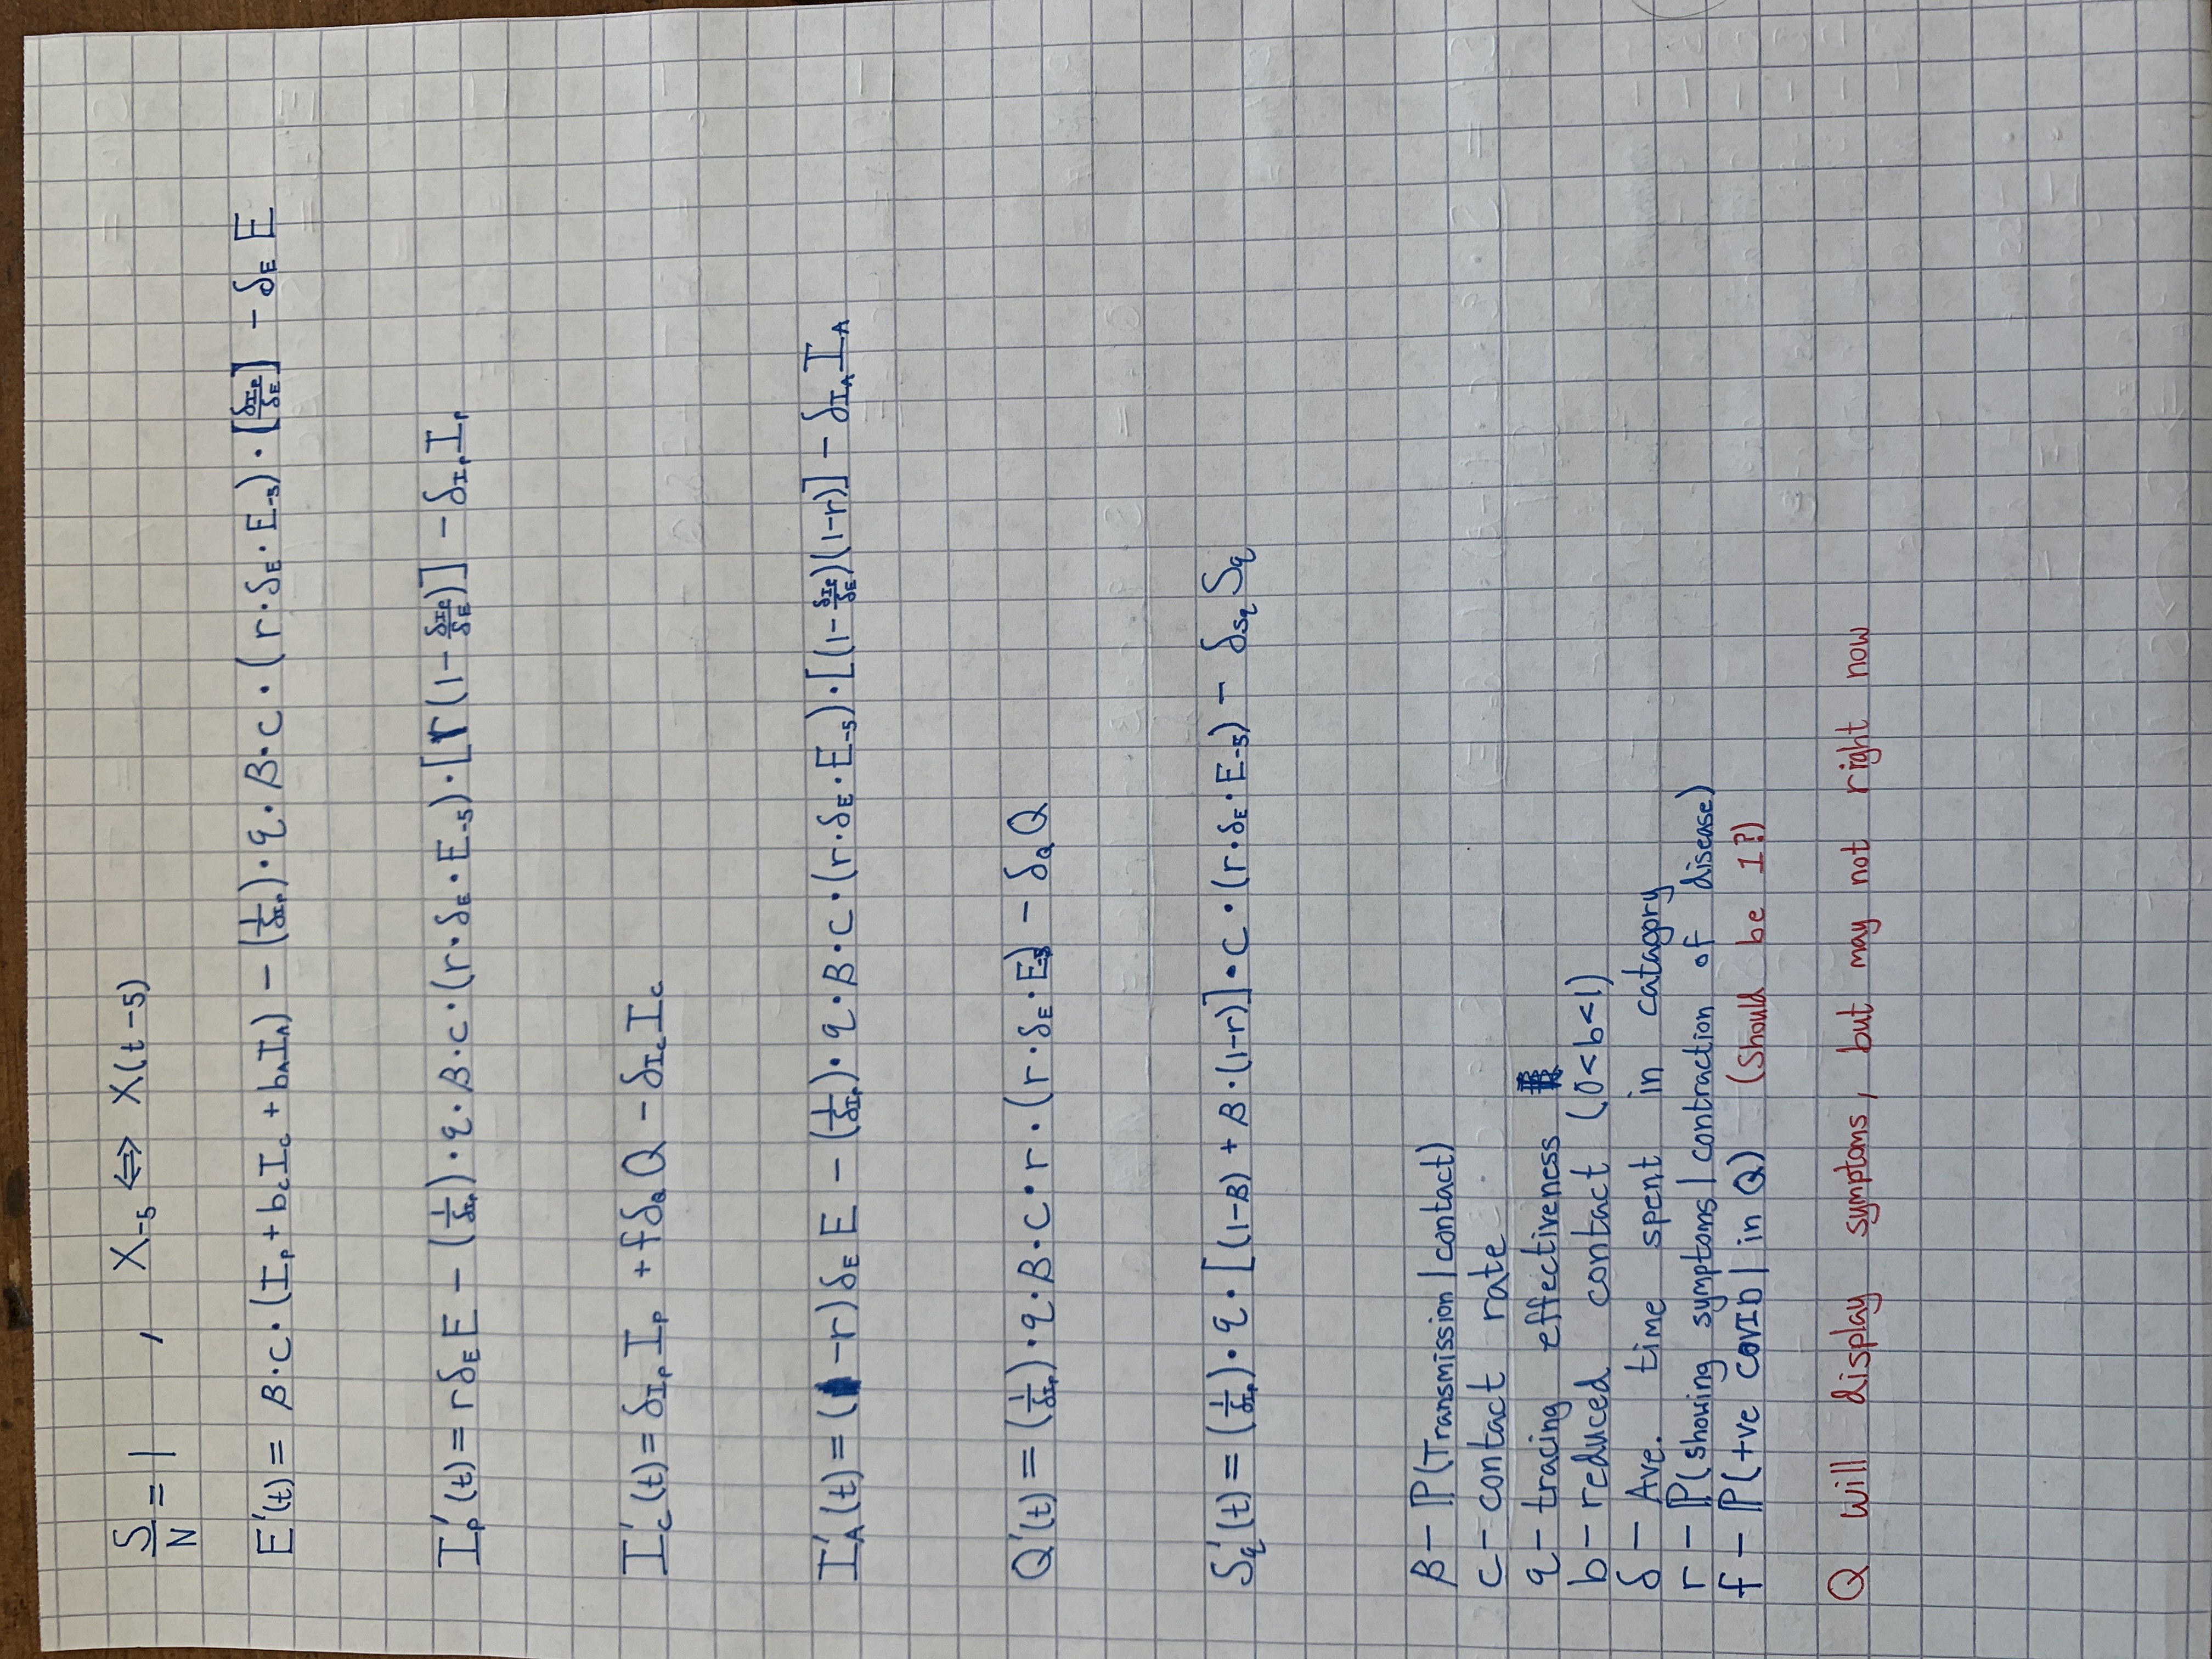 S/N = 1 , X₋₅ ⇔ X(t-5)
E'(t) = β·c·(I_P + b_c I_c + b_A I_A) - (1/δ_{I_P})·q·β·c·(r·δ_E·E₋₅)·[δ_{I_P}/δ_E] - δ_E E
I_P'(t) = rδ_E E - (1/δ_{I_P})·q·β·c·(r·δ_E·E₋₅)·[r(1-δ_{I_P}/δ_E)] - δ_{I_P} I_P
I_c'(t) = δ_{I_P} I_P + fδ_Q Q - δ_{I_c} I_c
I_A'(t) = (1-r)δ_E E - (1/δ_{I_P})·q·β·c·(r·δ_E·E₋₅)·[(1-δ_{I_P}/δ_E)(1-r)] - δ_{I_A} I_A
Q'(t) = (1/δ_{I_P})·q·β·c·r·(r·δ_E·E₋₅) - δ_Q Q
S_q'(t) = (1/δ_{I_P})·q·[(1-β) + β·(1-r)]·c·(r·δ_E·E₋₅) - δ_{S_q} S_q
β - ℙ(Transmission | contact)
c - contact rate
q - tracing effectiveness
b - reduced contact (0<b<1)
δ - Ave. time spent in catagory
r - ℙ(showing symptoms | contraction of disease)
f - ℙ(+ve COVID | in Q) (Should be 1?)
Q will display symptoms, but may not right now